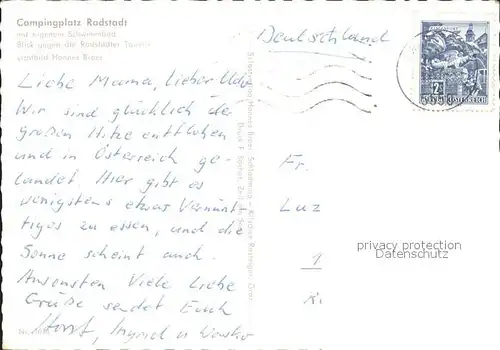 Campingplatz Radstadt
mit eigenem Schwimmbad
Blick gegen die Radstädter Tauern
Hannes Brass
Deutschland
Liebe Mama, lieber Udo
Wir sind glücklich der
großen Hitze entflohen
und in Österreich ge-
landet. Hier gibt es
wenigstens etwas Vernünf-
tiges zu essen, und die
Sonne scheint auch.
Ansonsten Viele liebe
Grüße sendet Euch
Horst, Ingrid u
Fr.
Luz
privacy protection
Datenschutz